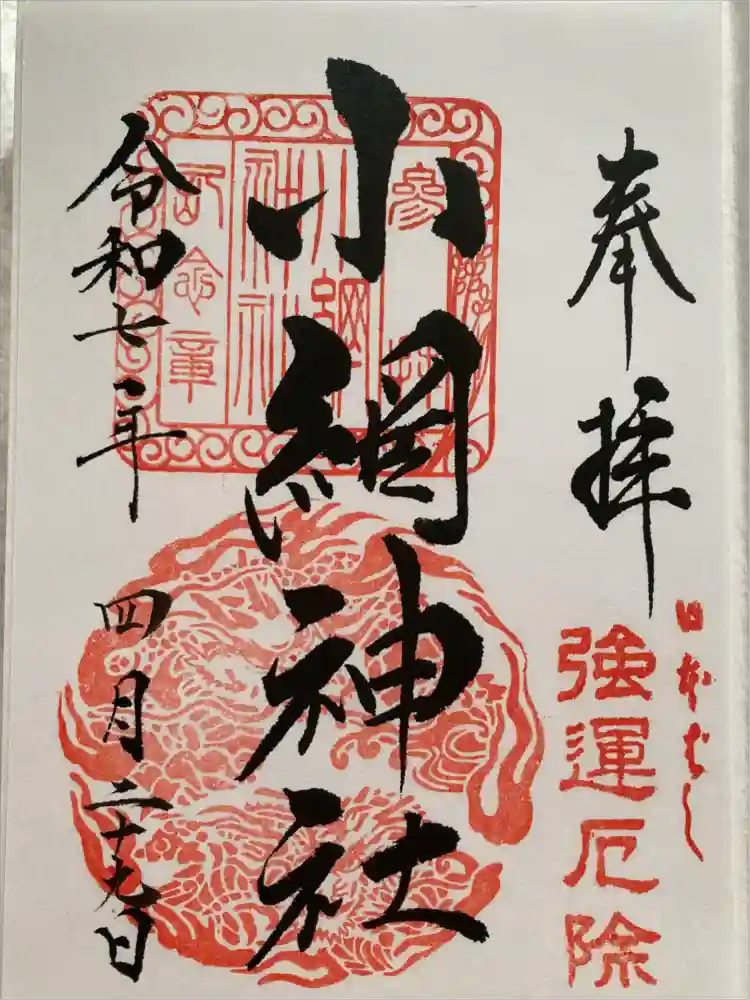 奉拝
日本ばし
強運厄除
参拝
小網神社
小網神社
記念章
令和七年
四月二十九日